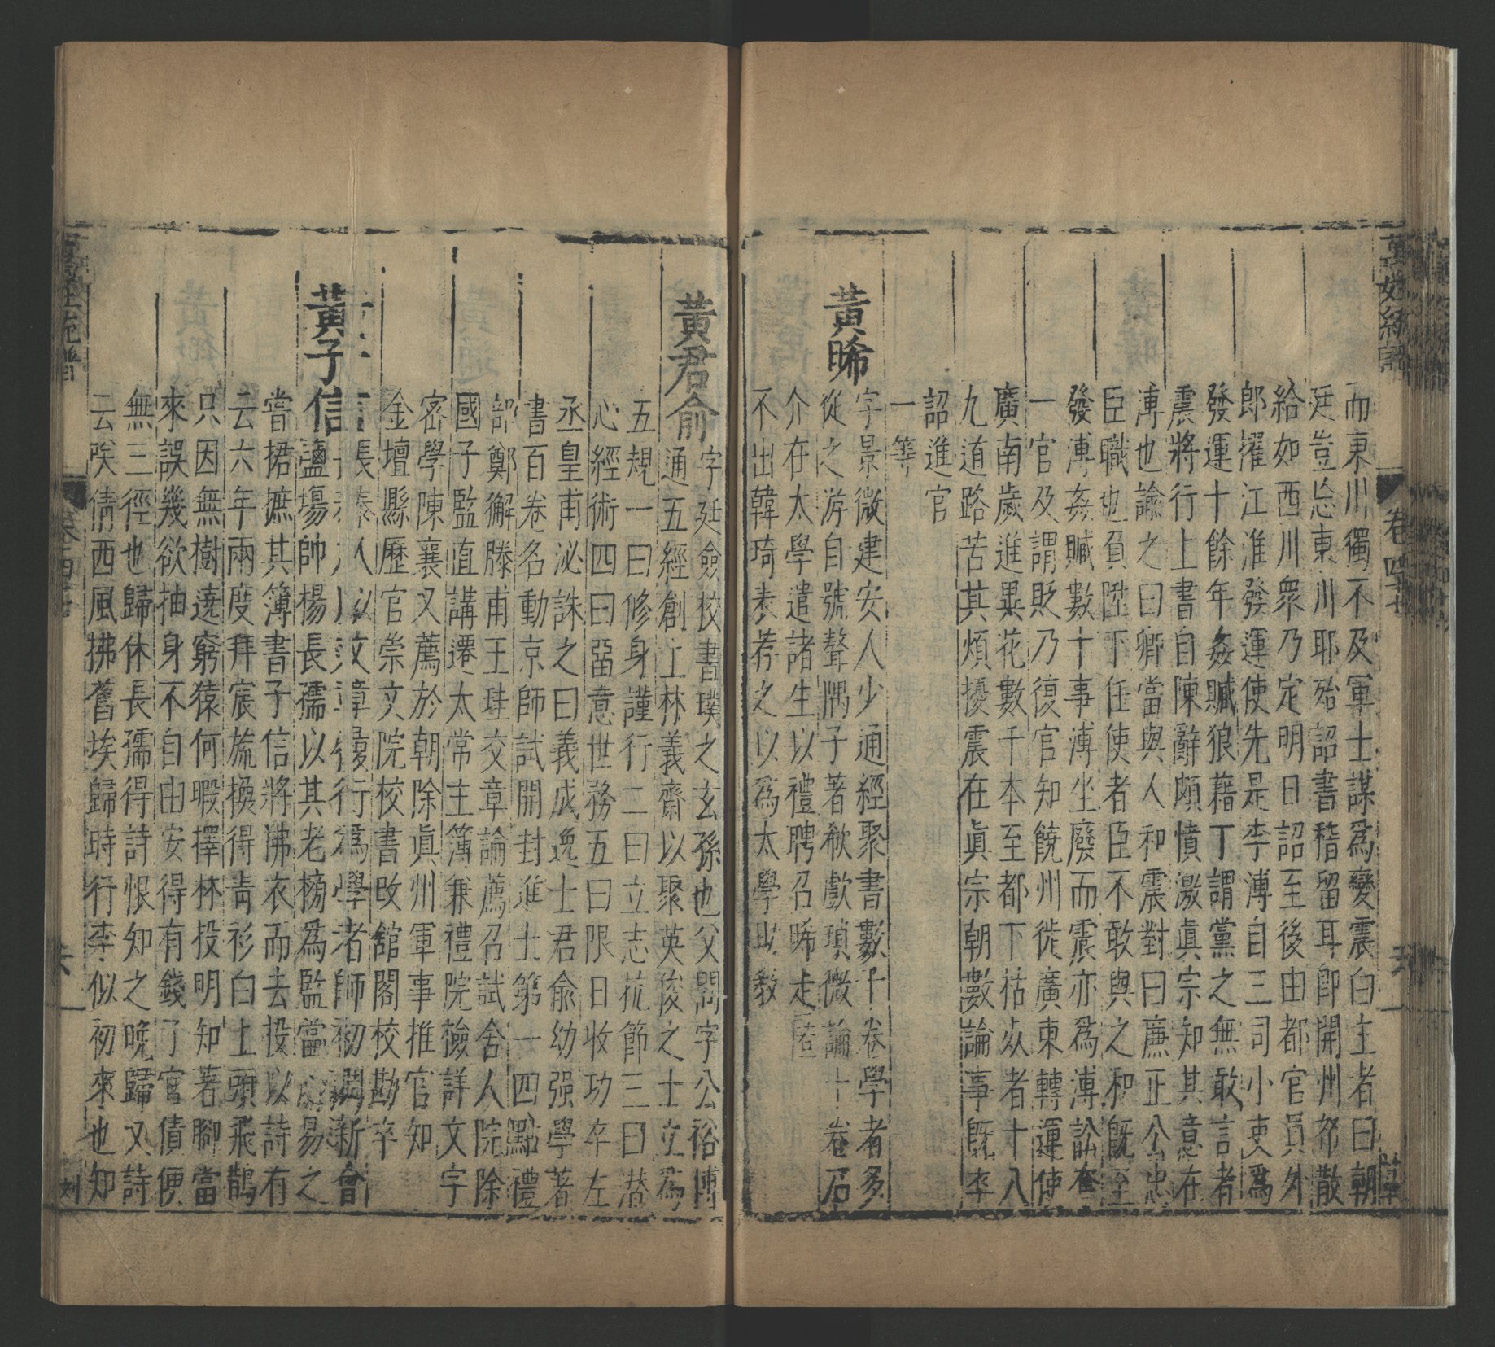 萬姓統譜
卷四十七
而東川獨不及軍士謀爲變震白主者曰朝
廷豈忘東川耶殆詔書稽留耳即開州帑散
給如西川衆乃定明日詔至後由都官員外
郎擢江淮發運使先是李溥自三司小吏爲
發運十餘年姦贓狼藉丁謂黨之無敢言者
震將行上書自陳辭頗憤激眞宗知其意在
溥也諭之曰卿當與人和震對曰廉正公忠
臣職也負陛下任使者臣不敢與之和旣至
發溥姦贓數十事溥坐廢而震亦爲溥訟奪
一官及謂貶乃復官知饒州徙廣東轉運使
廣南歲進異花數千本至都下枯死者十八
九道路苦其煩擾震在眞宗朝數論事旣卒
詔進官
一等
黃晞
字景微建安人少通經聚書數千卷學者多
從之游自號聱隅子著歙歔瑣微論十卷石
介在太學遣諸生以禮聘召晞走匿
不出韓琦表荐之以爲太學助教
黃君俞
字廷僉校書璞之玄孫也父閎字公裕博
通五經創上林義齋以聚英俊之士立爲
五規一曰修身謹行二曰立志抗節三曰潜
心經術四曰留意世務五曰限日收功卒左
丞皇甫泌誄之曰義成逸士君俞幼强學著
書百卷名動京師試開封進士第一四點禮
部鄭獬滕甫王珪交章論薦召試舍人院除
國子監直講遷太常主簿兼禮院檢詳文字
密學陳襄又薦於朝除眞州軍事推官知
金壇縣歷官崇文院校書改舘閣校勘卒
黃子信
長泰人以文章
行爲學者師初調新會
鹽場帥楊長孺以其老榜爲監當心易之
當捃摭其簿書子信將拂衣而去投以詩有
云六年兩度拜宸旒換得青衫白上頭飛鵲
只因無樹遶窮猿何暇擇林投明知著脚當
來誤幾欲抽身不自由安得有錢了官債便
無三徑也歸休長孺得詩恨知之晚歸又詩
云唉倩西風拂舊埃歸時行李似初來也知